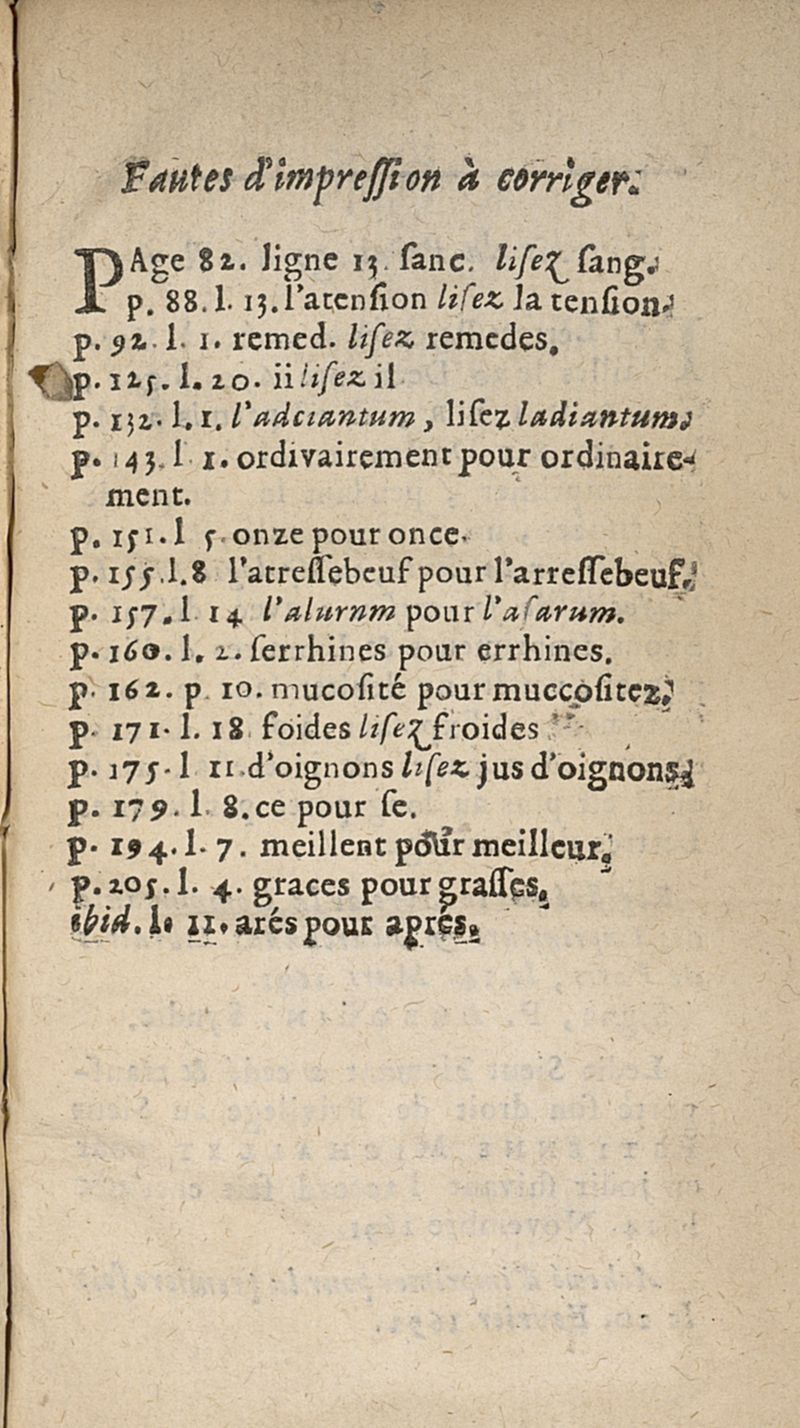 Fautes d'impreſſion à corriger.
PAge 82. ligne 13. ſanc. liſez ſang.
p. 88. l. 13. l'atenſion liſez la tenſion.
p. 92. l. 1. remed. liſez remedes.
p. 125. l. 20. ii liſez il
p. 132. l. 1. l'adciantum, liſez ladiantum.
p. 143. l 1. ordivairement pour ordinaire-
ment.
p. 151. l 5. onze pour once.
p. 155. l. 8 l'atreſſebeuf pour l'arreſſebeuf.
p. 157. l 14 l'alurnm pour l'aſarum.
p. 160. l. 2. ſerrhines pour errhines.
p. 162. p 10. mucoſité pour muccoſitez.
p. 171. l. 18. foides liſez froides
p. 175. l 11. d'oignons liſez jus d'oignons.
p. 179. l 8. ce pour ſe.
p. 194. l. 7. meillent pour meilleur.
p. 205. l. 4. graces pour graſſes.
ibid. l. 11. arés pour aprés.